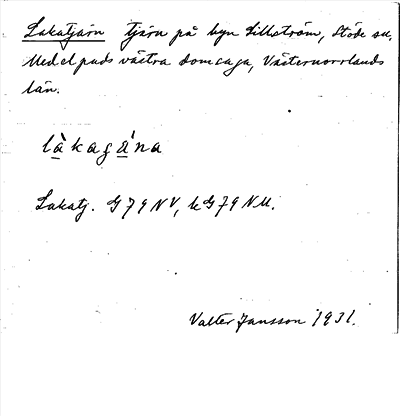 Lakatjärn tjärn på byn Lillström, Stöde sn,
Medelpads västra domsaga, Västernorrlands
län.
làkagǻna
Lakatj. G 79 NV, k G 79 NV.
Valter Jansson 1931.